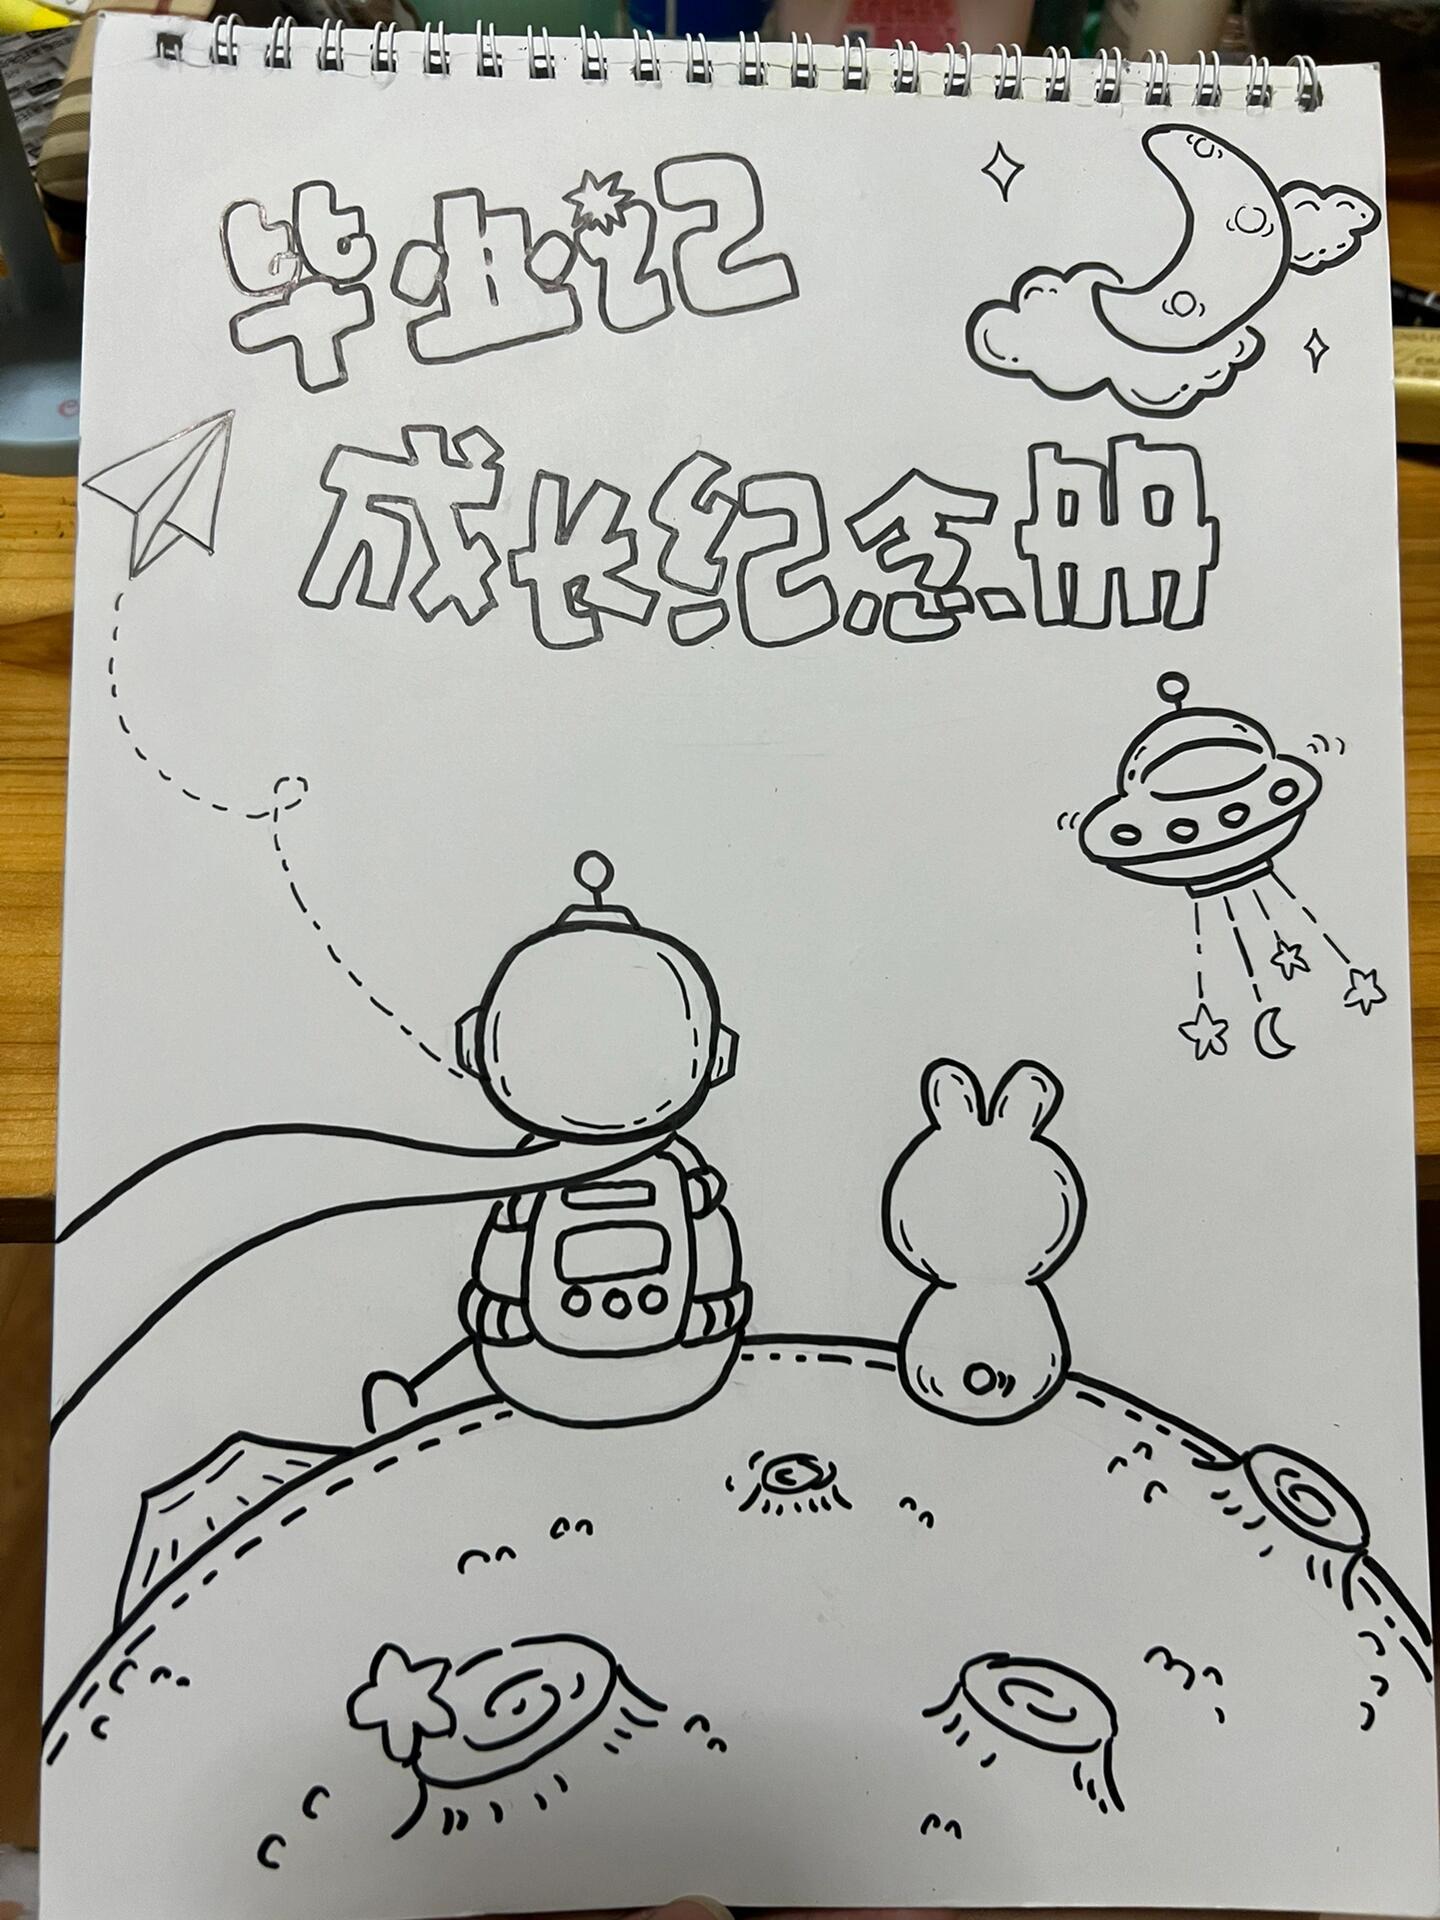 毕业记
成长纪念册